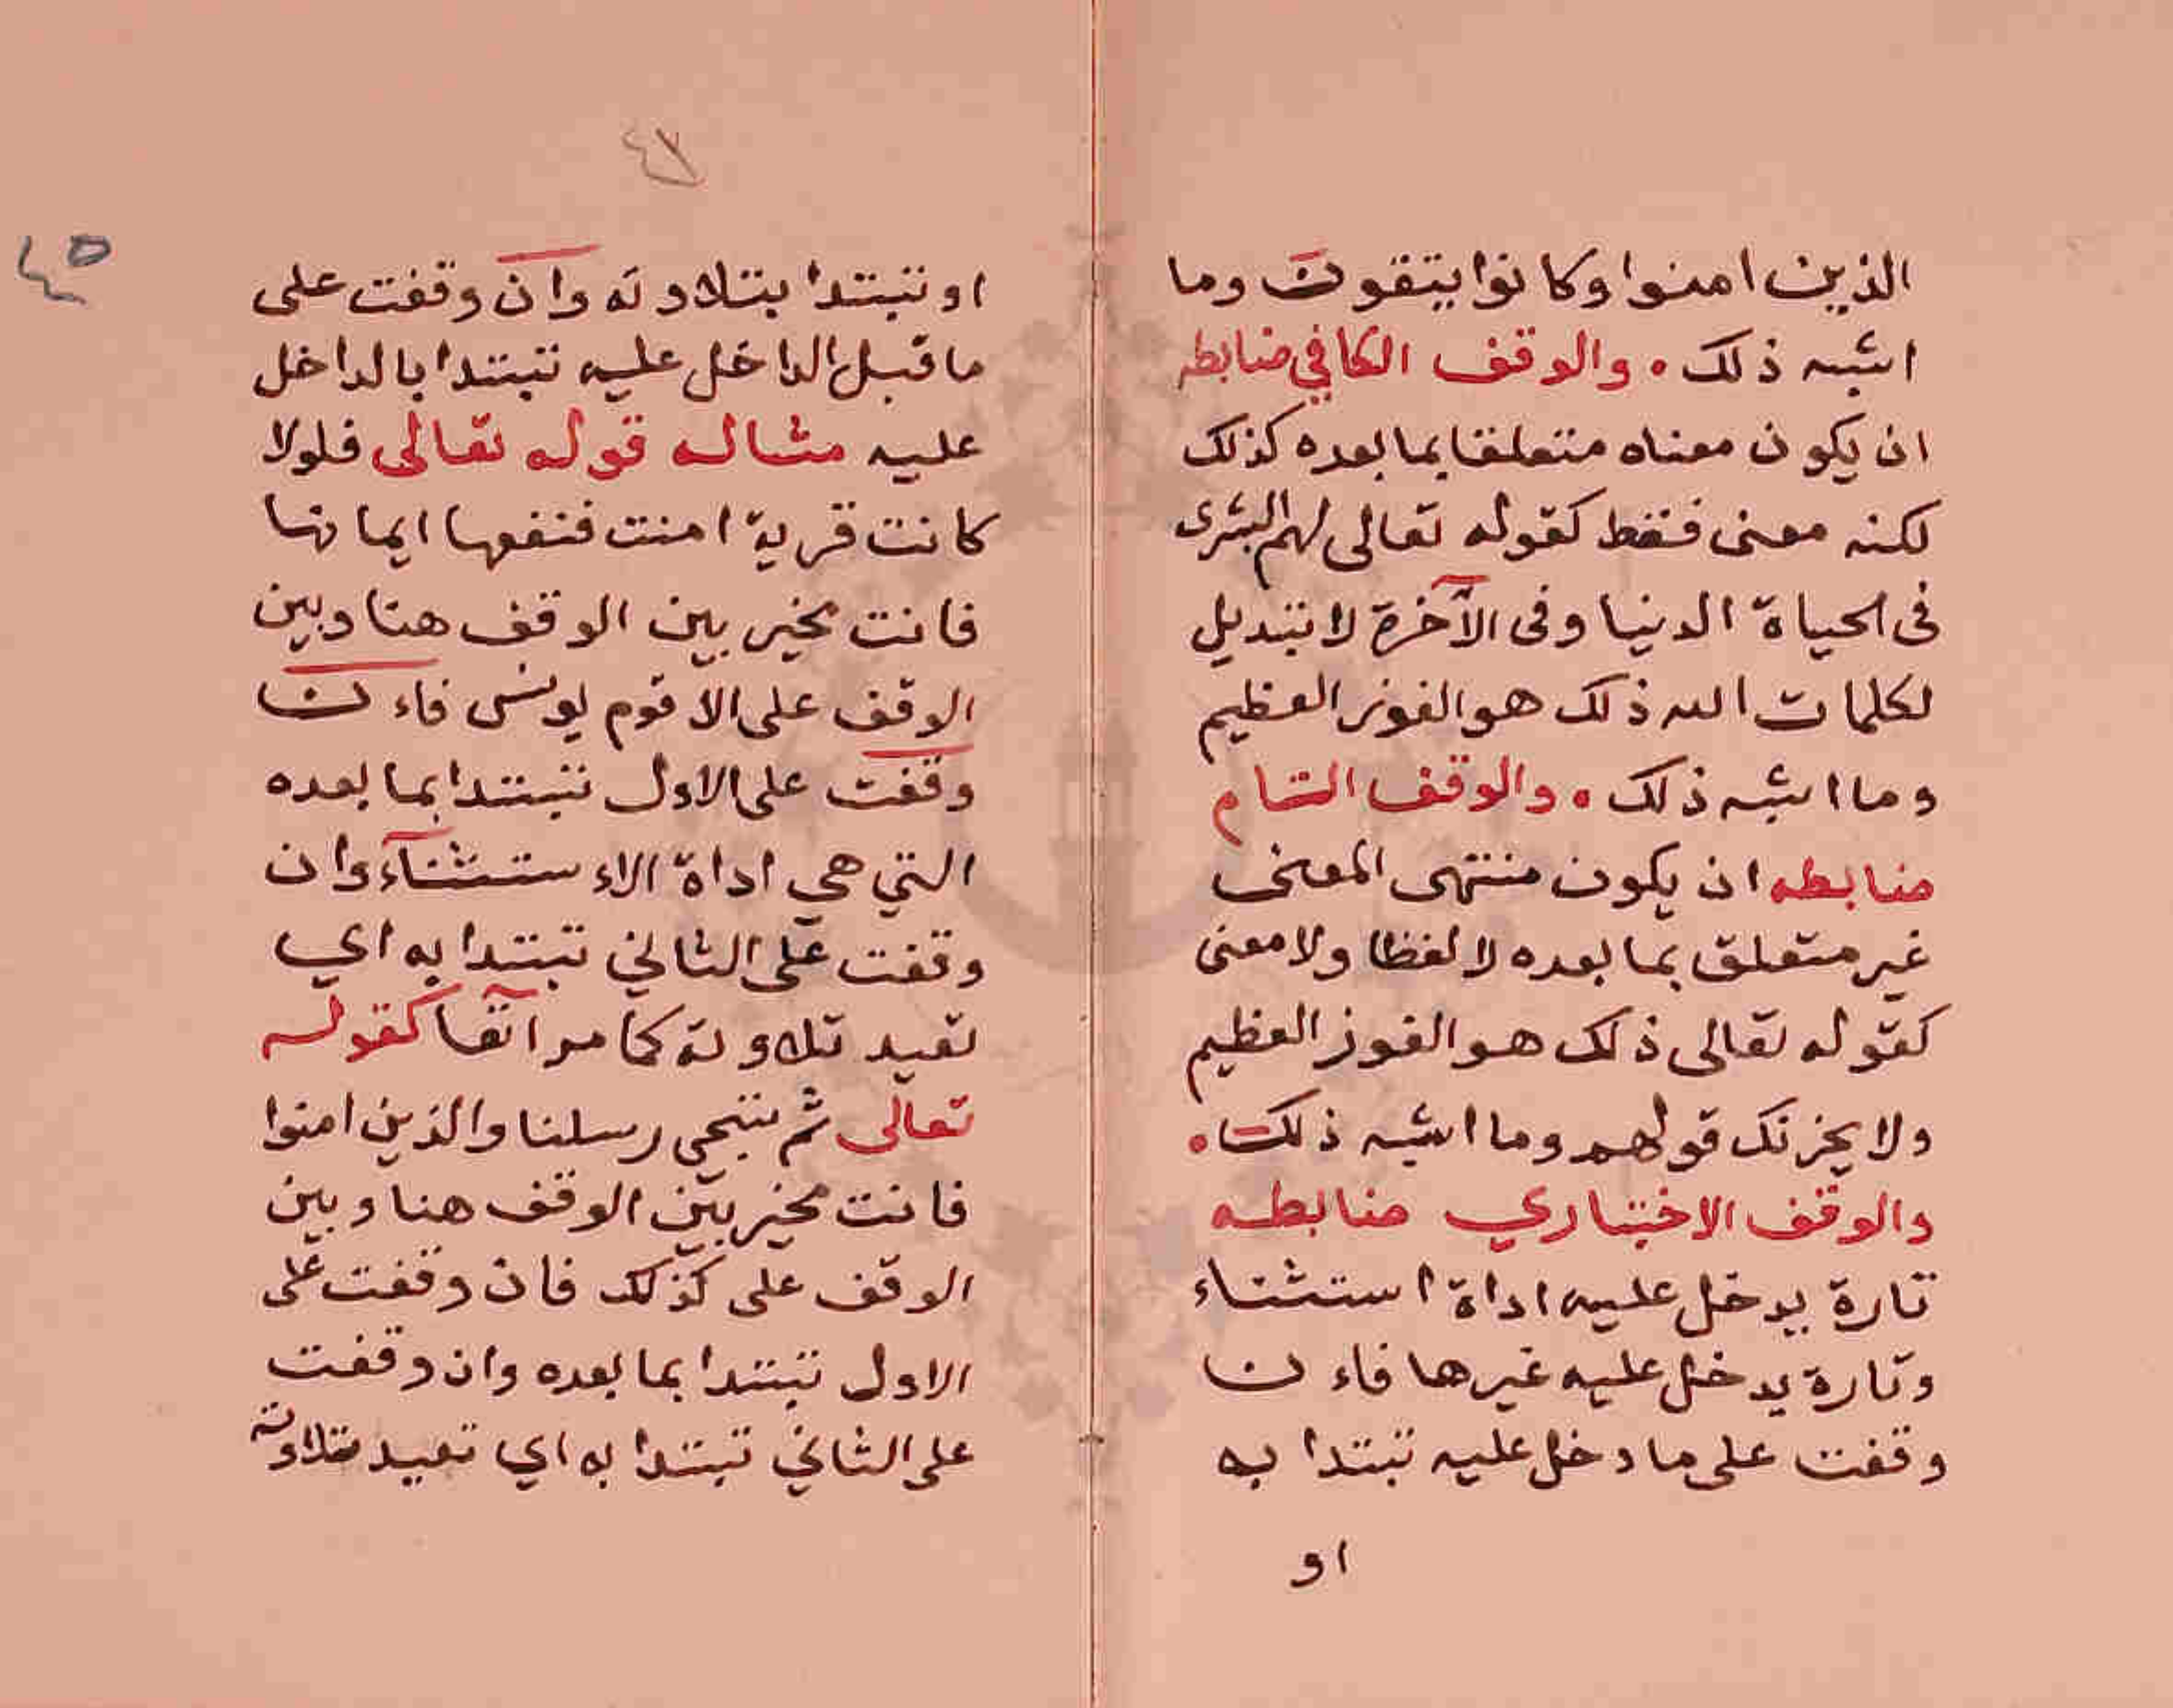 الذين امنوا وكانوا يتقون وما
اشبه ذلك • والوقف الكافي ضابطه
ان يكون معناه متعلقا بما بعده كذلك
لكنه معنى فقط كقوله تعالى لهم البشرى
فى الحياة الدنيا وفى الآخرة لا تبديل
لكلمات الله ذلك هو الفوز العظيم
وما اشبه ذلك • والوقف التام
ضابطه ان يكون منتهى المعنى
غير متعلق بما بعده لا لفظا ولا معنى
كقوله تعالى ذلك هو الفوز العظيم
ولا يحزنك قولهم وما اشبه ذلك •
والوقف الاختباري ضابطه
تارة يدخل عليه اداة استثناء
وتارة يدخل عليه غيرها فاءن
وقفت على ما دخل عليه تبتدا به
او
٤٧
٤٥
او تبتدا بتلاوته وان وقفت على
ما قبل الداخل عليه تبتدا بالداخل
عليه مثاله قوله تعالى فلولا
كانت قرية امنت فنفعها ايمانها
فانت مخير بين الوقف هنا وبين
الوقف على الا قوم يونس فاءن
وقفت على الاول تبتدا بما بعده
التي هي اداة الاءستثناء وان
وقفت على الثاني تبتدا به اي
تعيد تلاوته كما مر آنفا كقوله
تعالى ثم ننجي رسلنا والذين امنوا
فانت مخير بين الوقف هنا وبين
الوقف على كذلك فان وقفت على
الاول تبتدا بما بعده وان وقفت
على الثاني تبتدا به اي تعيد تلاوته